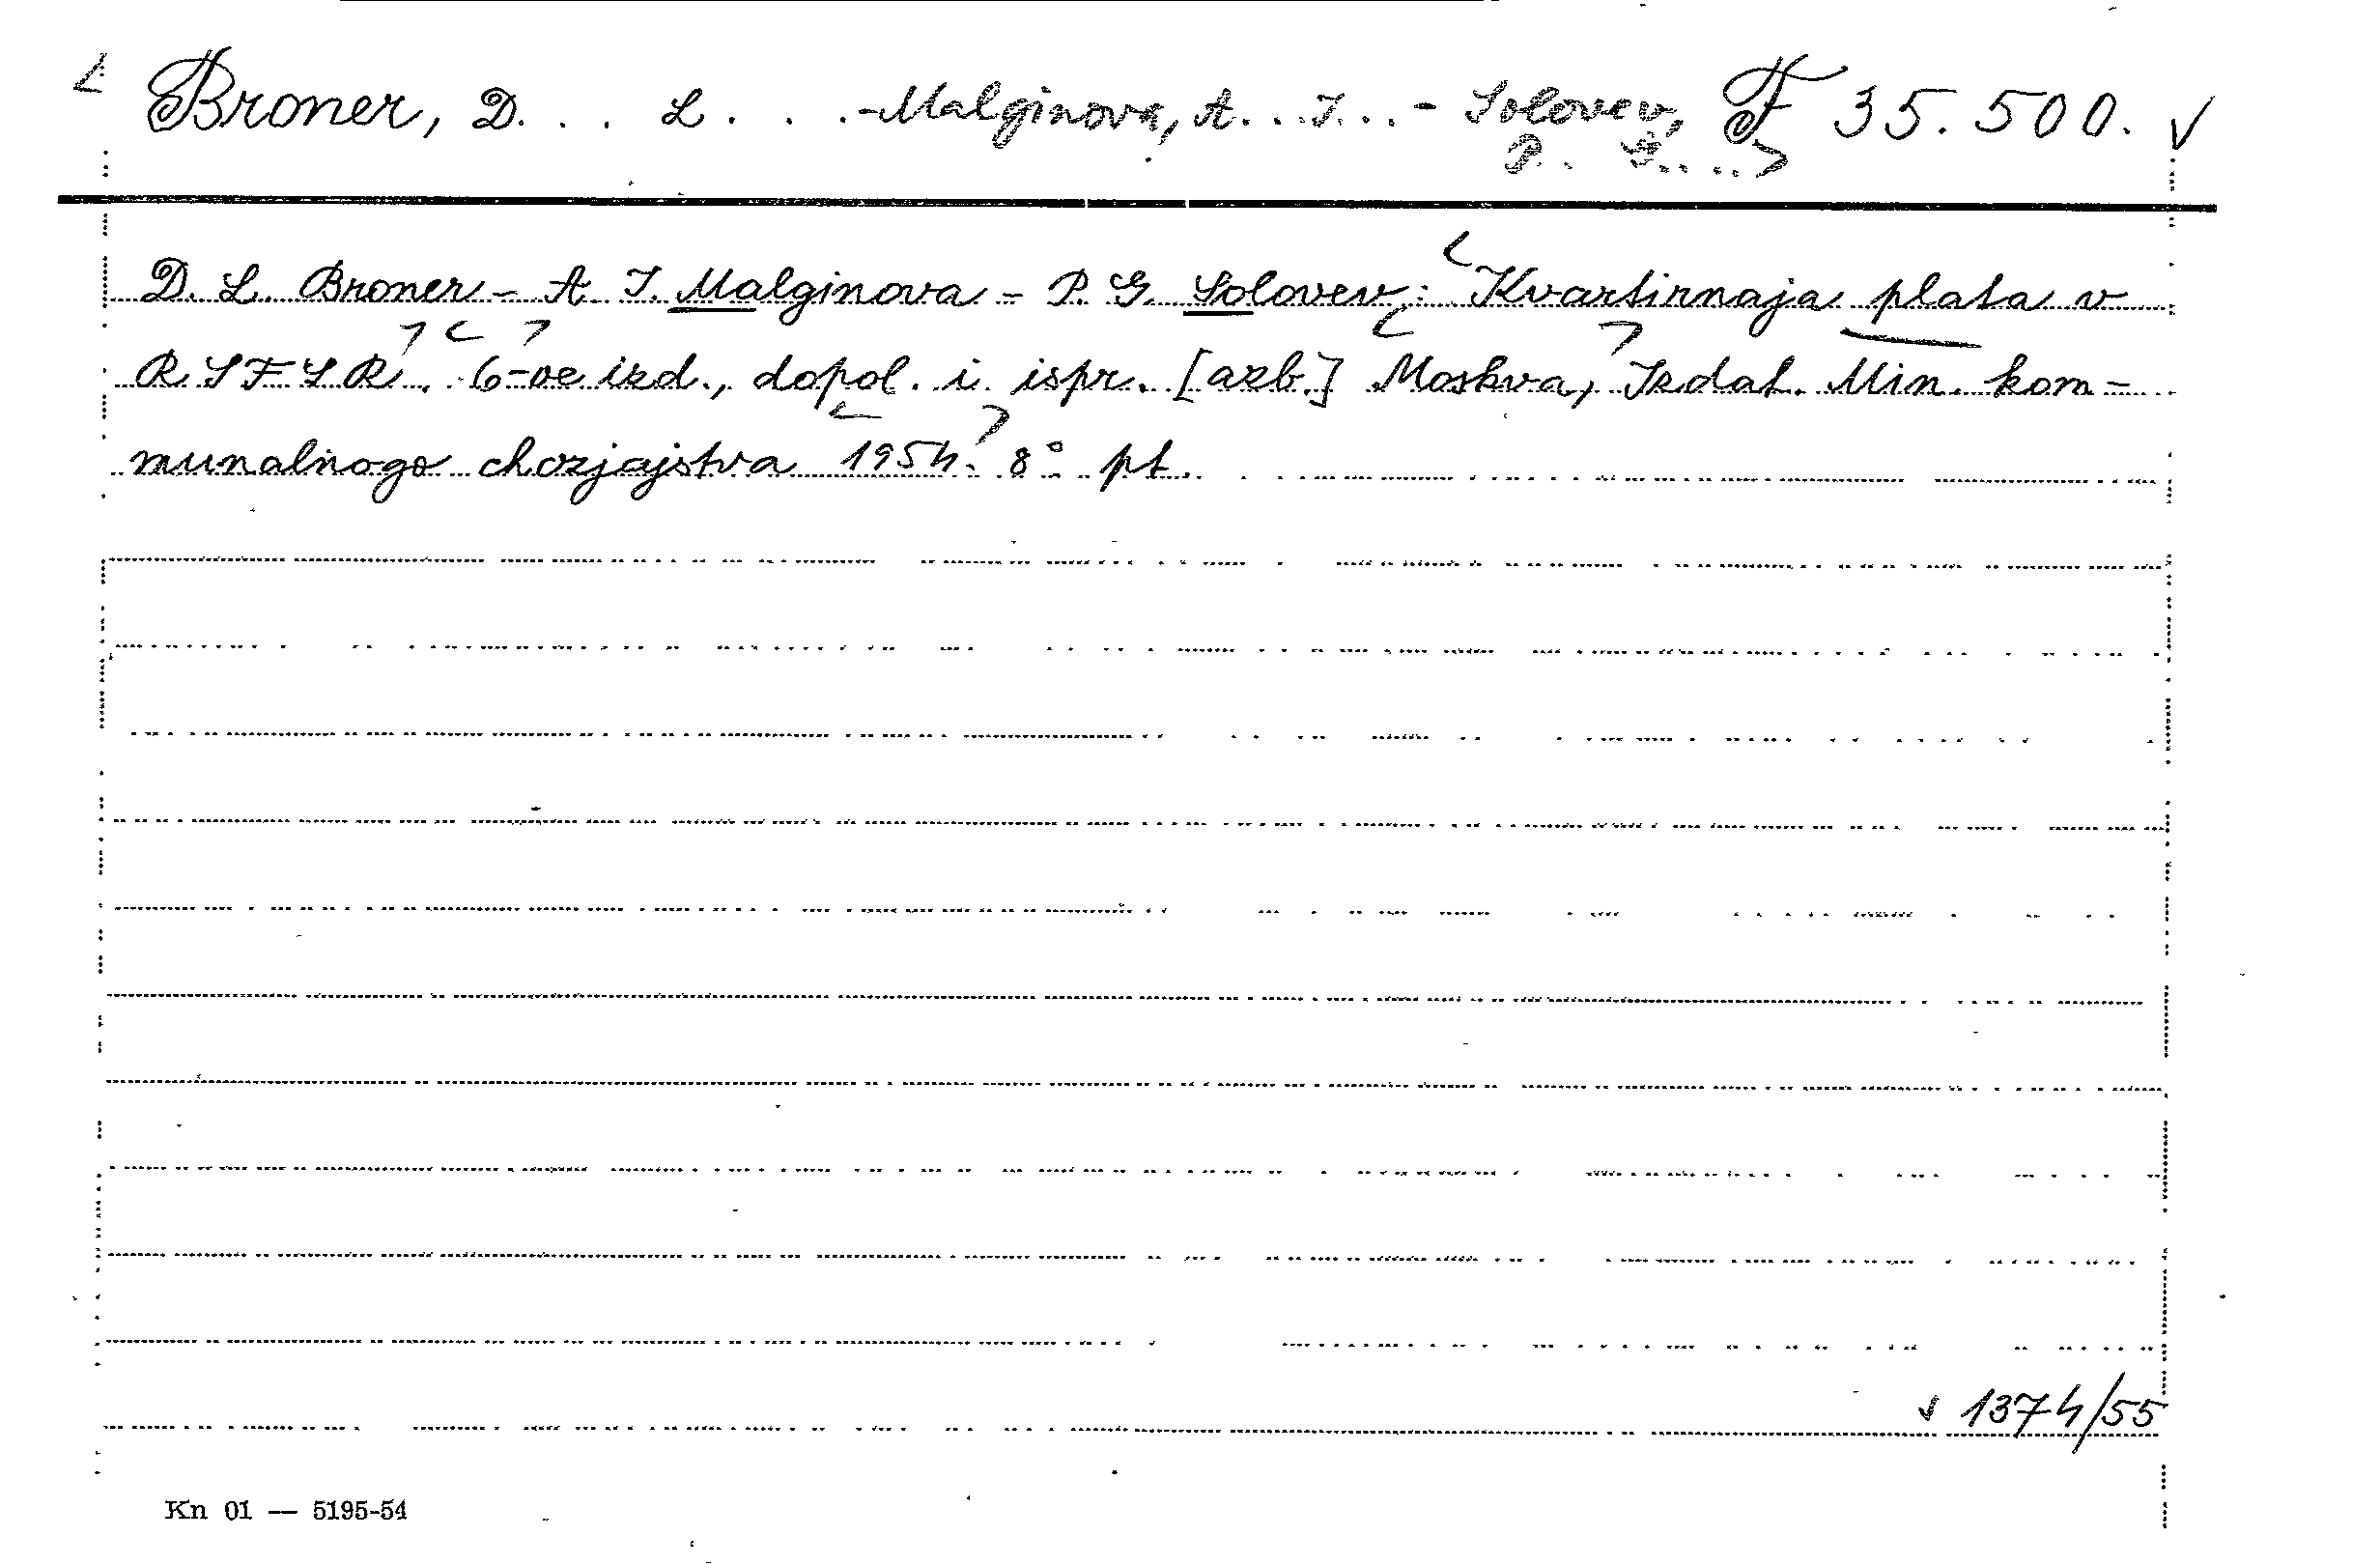 Broner, D. . . L . . .-Malginova, A. . . I. . . - Solovev, F 35.500. √
P. . G. . . .
D. L. Broner - A. I. Malginova - P. G. Solovev: Kvartirnaja plata v
RSFSR. 6-oe izd., dopol. i ispr. [azb.] Moskva, Izdat. Min. kom-
munalnogo chozjajstva 1954. 8° pt.
√ 1374/55
Kn 01 — 5195-54